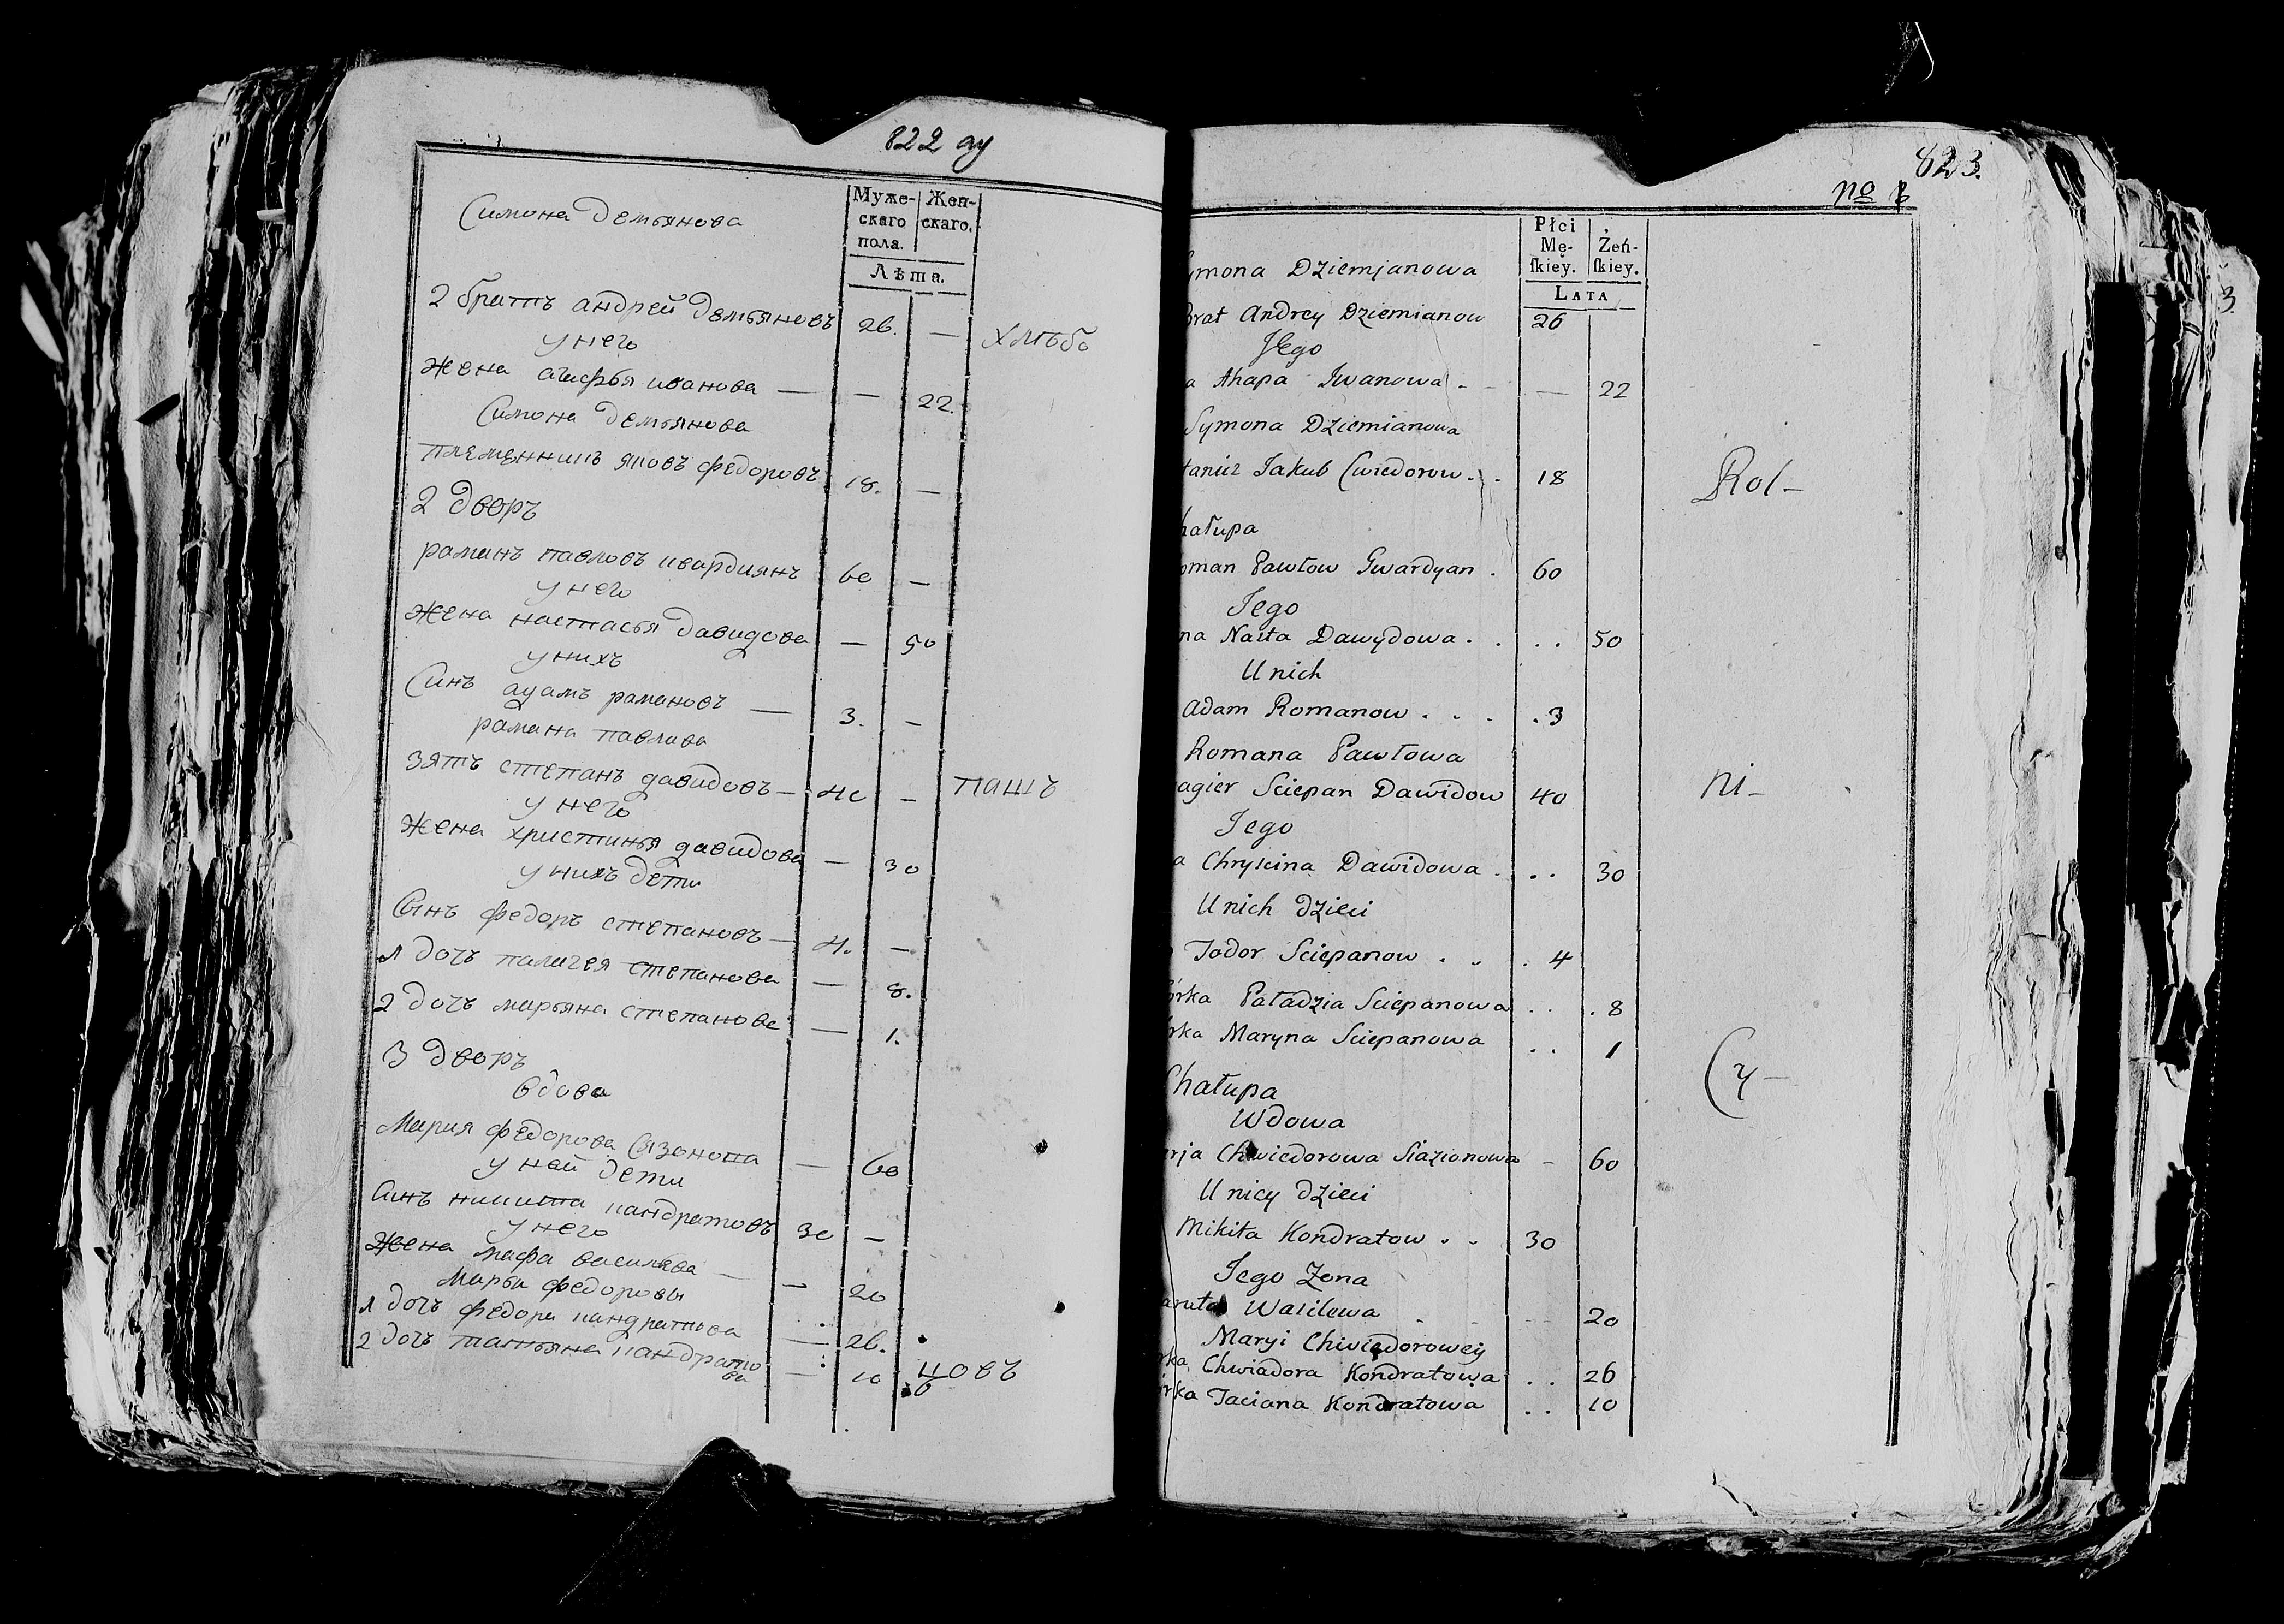 822 ау
Муже-
скаго
пола.
Жен-
скаго.
Лѣта.
Симона Демьянова
2 братъ андрей Демьяновъ 26. —
у него
жена агафья иванова — — 22.
Симона Демьянова
племянникъ яковъ федоровъ 18. —
2 Дворъ
раманъ павловъ квардиянъ 60 —
у него
жена настасья Давидова — 50
у нихъ
Синъ адамъ рамановъ — 3. —
рамана павлава
зять степанъ давидовъ — 40 —
у него
жена христинья давидова — 30
у нихъ дети
Сынъ федоръ степановъ — 4. —
1 дочь палагея степанова — 8.
2 дочь марьяна степанова — 1.
3 дворъ
вдова
Мария федорова — 60
у ней дети
Синъ никита кандратовъ 30 —
у него
жена васильва — — 20
Марьи федоровы
1 дочь федора кандратьва — 26.
2 дочь татьяна кандрато
ва — 10
хлѣбо
паш
цовъ
823.
no
Płci
Mę-
skiey.
Żeń-
skiey.
LATA
ymona Dziemjanowa
Brat Andrey Dziemianow 26
Jego
a Ahapa Iwanowa - — 22
Symona Dziemianowa
tanicz Jakub Chwiedorow . . 18
hałupa
oman Pawłow Gwardyan . 60
Jego
na Nasta Dawydowa . . . . 50
U nich
Adam Romanow . . . . 3
Romana Pawłowa
agier Sciepan Dawidow 40
Jego
a Chryscina Dawidowa . . . 30
U nich dzieci
Todor Sciepanow . . . 4
órka Paładzia Sciepanowa . . . 8
rka Maryna Sciepanowa . . 1
Chałupa
Wdowa
rja Chwiedorowa Siazionowa - 60
U niey dzieci
Mikita Kondratow . . 30
Jego Zona
Wasilewa 20
Maryi Chwiedorowey
rka Chwiadora Kondratowa . . 26
rka Taciana Kondratowa . . 10
Rol-
ni-
Cy-